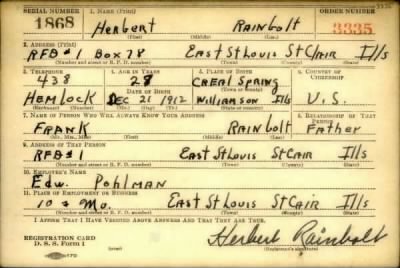 SERIAL NUMBER 1. NAME (Print) ORDER NUMBER
1868 Herbert Rainbolt 3335
(First) (Middle) (Last)
2. ADDRESS (Print)
RFD#1 Box 78 East St Louis St Clair Ills
(Number and street or R. F. D. number) (Town) (County) (State)
3. TELEPHONE 4. AGE IN YEARS 5. PLACE OF BIRTH 6. COUNTRY OF CITIZENSHIP
438 28 Creal Spring
DATE OF BIRTH (Town or county)
Hemlock Dec 21 1912 Williamson Ills U.S.
(Exchange) (Number) (Mo.) (Day) (Yr.) (State or country)
7. NAME OF PERSON WHO WILL ALWAYS KNOW YOUR ADDRESS 8. RELATIONSHIP OF THAT PERSON
Frank Rainbolt Father
(Mr., Mrs., Miss) (First) (Middle) (Last)
9. ADDRESS OF THAT PERSON
RFD#1 East St Louis St Clair Ills
(Number and street or R. F. D. number) (Town) (County) (State)
10. EMPLOYER'S NAME
Edw. Pohlman
11. PLACE OF EMPLOYMENT OR BUSINESS
10 & Mo. East St Louis St Cair Ills
(Number and street or R. F. D. number) (Town) (County) (State)
I AFFIRM THAT I HAVE VERIFIED ABOVE ANSWERS AND THAT THEY ARE TRUE.
REGISTRATION CARD
D. S. S. Form 1 Herbert Rainbolt
(Registrant's signature)